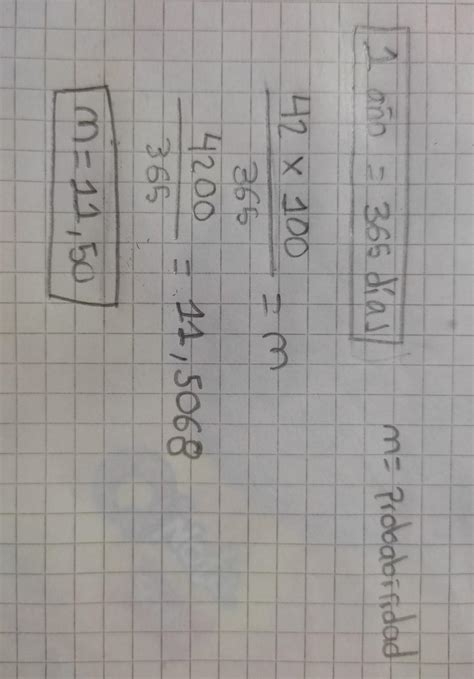 1 año = 365 días
m = Probabilidad
42 x 100
365
= m
4200
365
= 11,5068
m = 11,50